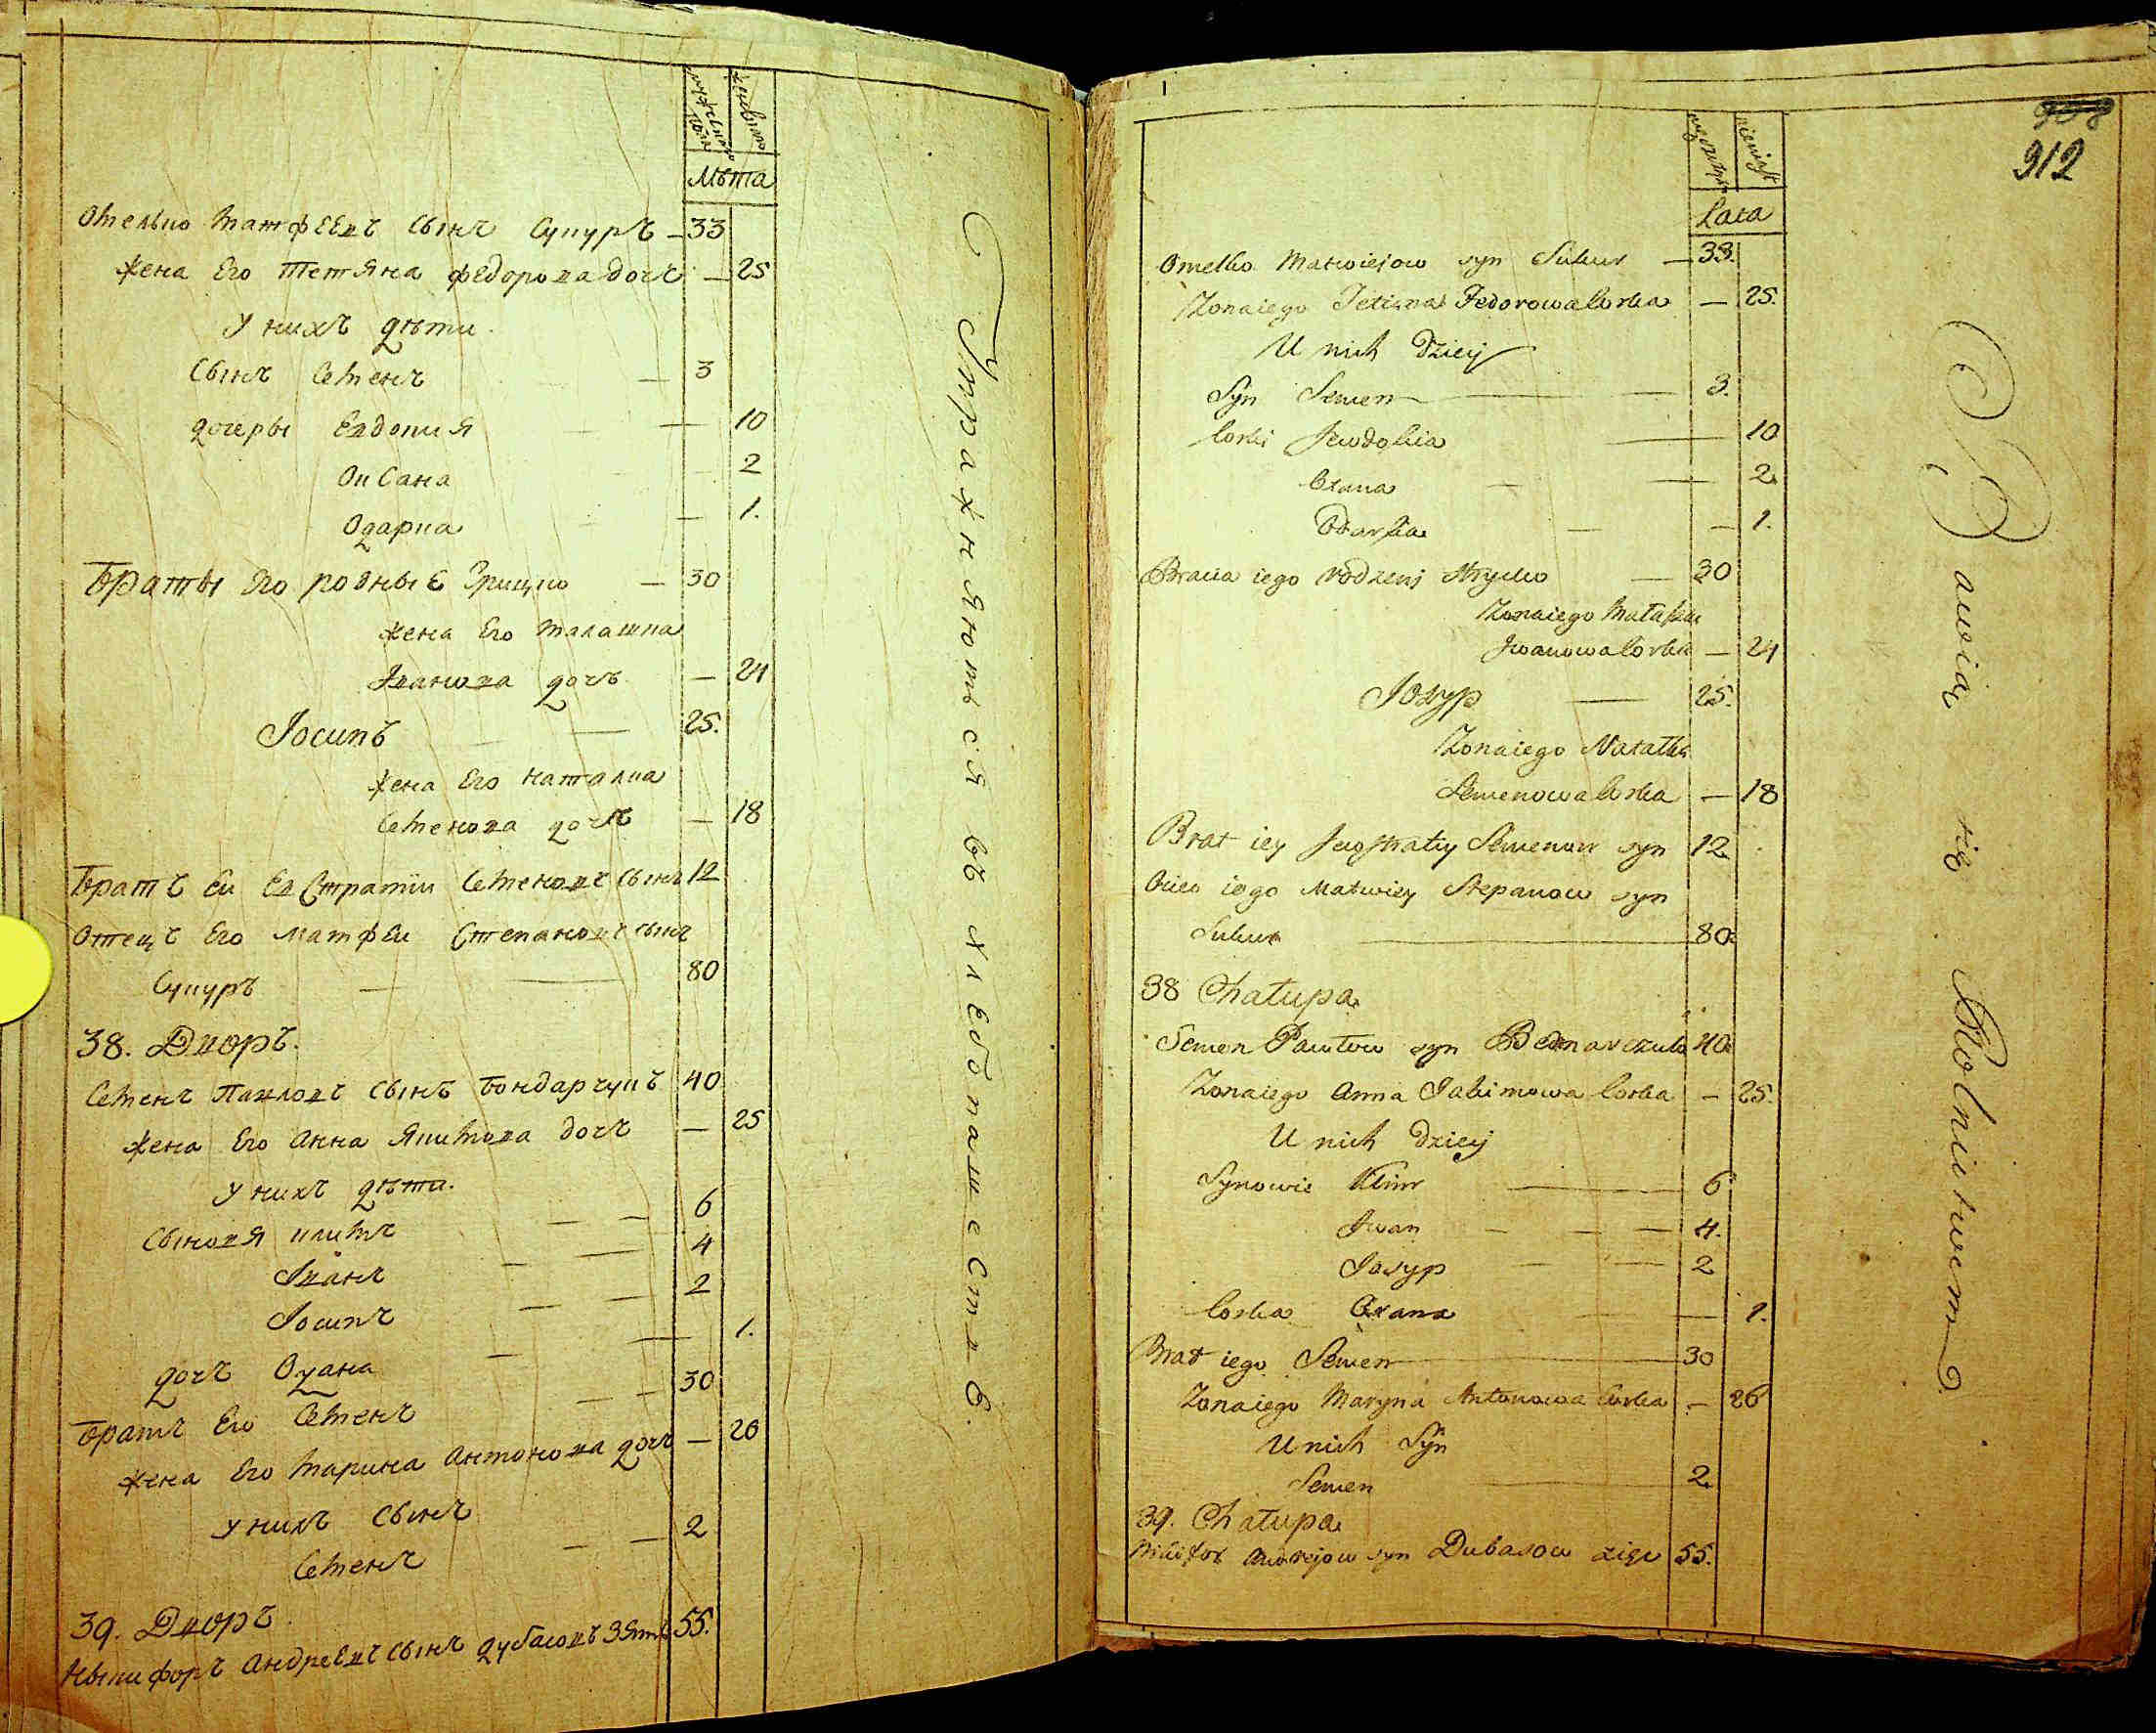 Лѣта
Омелько Матфеевъ сынъ Сукуръ — 33
жена Его Тетяна Федорова дочь — 25
У нихъ дѣти.
Сынъ Семенъ — 3
дочеры Евдокия — 10
Оксана 2
Одарка — 1.
Браты Его родные Грицко — 30
жена Его Малашка
Іванова дочь — 24
Іосипъ — 25.
жена Его Наталка
Семенова дочь — 18
Братъ Еи Евстратіи Семеновъ сынъ 12
Отецъ Его Матфеи Степановъ сынъ
Сукуръ — 80
38. Дворъ.
Семенъ Павловъ сынъ Бондарчукъ 40
жена Его Анна Якимова дочь — 25
У нихъ дѣти.
Сыновя Климъ — 6
Іванъ — 4
Іосипъ — 2
дочь — 1.
Братъ Его Семенъ — 30
жена Его Марина Антонова дочь — 26
У нихъ сынъ
Семенъ — 2
39. Дворъ.
Ныкифоръ Андреевъ сынъ Дубасовъ зять 55.
Упражняютъся въ хлебопашествѣ.
912
Lata
Omelko Matwiejow syn Sukur — 33.
Zona iego Tetiana Fedorowa Corka — 25.
U nich Dziecj
Syn Semen — 3.
Corki Jewdokia — 10
Oxana — 2
Odarka — 1.
Bracia iego rodzenj Hrycko — 30
Zona iego Małaszka
Jwanowa Corka — 24
Josyp — 25.
Zona iego Natałka
Semenowa Corka — 18
Brat iey Jewstratiy Semenow syn 12
Ociec iego Matwiey Stepanow syn
Sukur — 80
38 Chałupa
Semen Pawłow syn Bednarczuk 40
Zona iego Anna Jakimowa Corka — 25.
U nich Dziecj
Synowie Klim — 6
Jwan — 4.
Josyp — 2
Corka Oxana — 1.
Brat iego Semen — 30
Zona iego Maryna Antonowa Corka — 26
U nich Syn
Semen — 2
39. Chałupa
Nikifor Andrejow syn Dubasow zięc 55.
Bawią się Rolnictwem